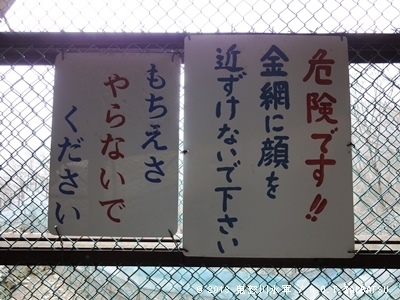 危険です!!
金網に顔を
近ずけないで下さい
もちえさ
やらないで
ください